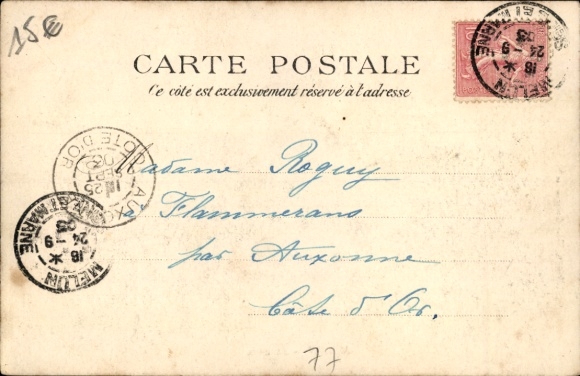 15€
CARTE POSTALE
Ce côté est exclusivement réservé à l'adresse
MELUN
SEINE ET MARNE
18
24 - 9
03
AUXONNE
CÔTE D'OR
25
SEPT
03
MELUN
SEINE ET MARNE
18
24 - 9
03
Madame Roguy
à Flammerans
par Auxonne
Côte d'Or.
77